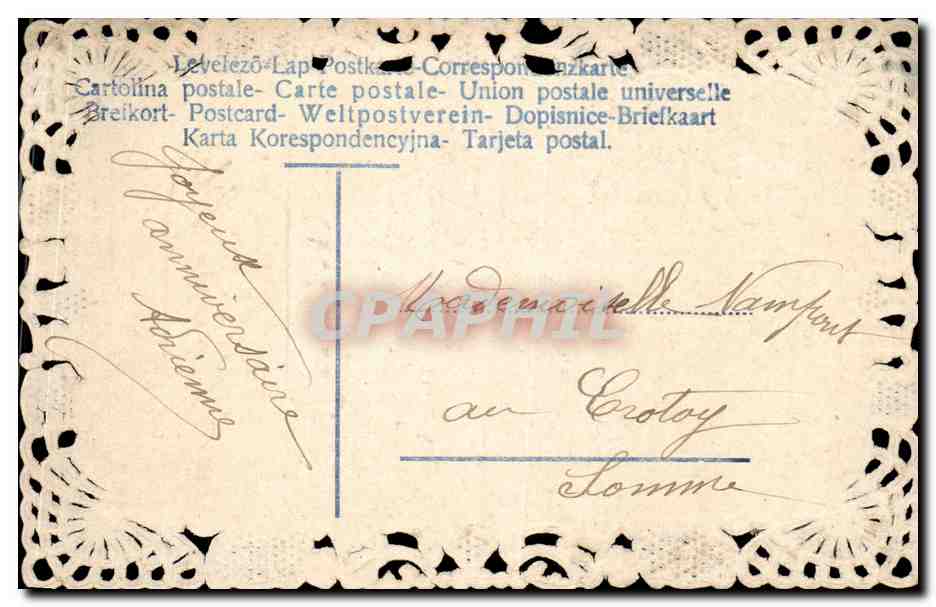 Levelező-Lap-Postkarte-Correspondenzkarte
Cartolina postale- Carte postale- Union postale universelle
Brefkort- Postcard- Weltpostverein- Dopisnice-Briefkaart
Karta Korespondencyjna- Tarjeta postal.
Joyeux
anniversaire
Adrienne
Mademoiselle Nampont
au Crotoy
Somme
CPAPHIL